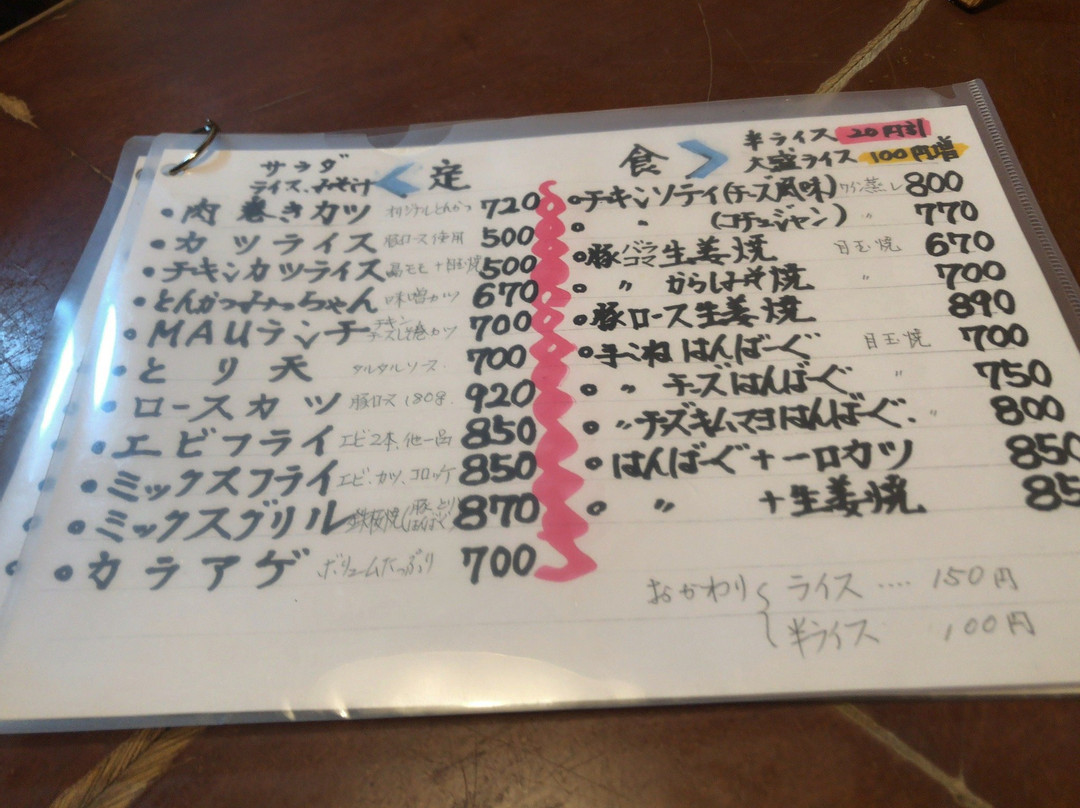 サラダ
ライス、みそ汁
定 食
半ライス 20円引
大盛ライス 100円増
・肉巻きカツ オリジナルとんかつ 720
・カツライス 豚ロース使用 500
・チキンカツライス 鶏モモ+目玉焼 500
・とんかつみっちゃん 味噌カツ 670
・MAUランチ チキン 700
・とり天 タルタルソース 700
・ロースカツ 豚ロース180g. 920
・エビフライ エビ2本、他一品 850
・ミックスフライ エビ、カツ、コロッケ 850
・ミックスグリル 鉄板焼(豚、とり はんばぐ) 870
・カラアゲ ボリュームたっぷり 700
・チキンソテイ(チーズ風味) ワイン蒸し 800
・ 〃 (コチュジャン) 〃 770
・豚バラコマ生姜焼 目玉焼 670
・ 〃 からしみそ焼 〃 700
・豚ロース生姜焼 890
・手こねはんばーぐ 目玉焼 700
・ 〃 チーズはんばーぐ 〃 750
・ 〃 チーズキムマヨはんばーぐ. 〃 800
・はんばーぐ+一口カツ 850
・ 〃 +生姜焼 85
おかわり ライス .... 150円
半ライス 100円